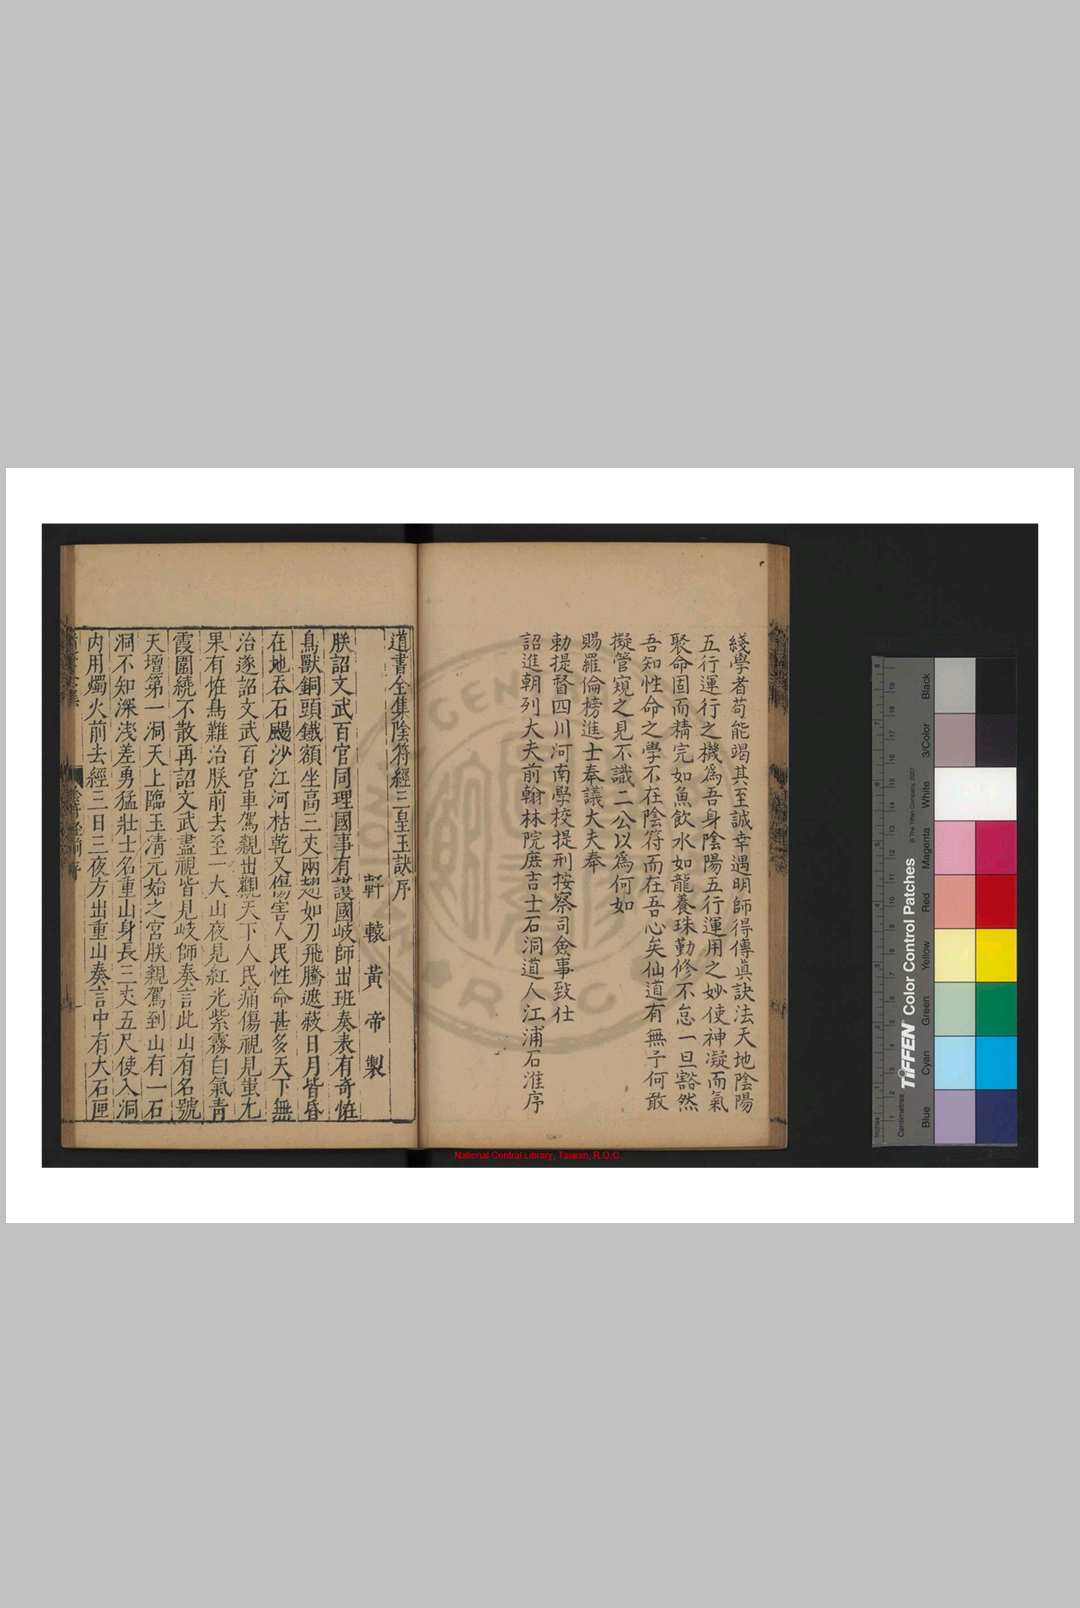 綫學者苟能竭其至誠幸遇明師得傳眞訣法天地陰陽
五行運行之機爲吾身陰陽五行運用之妙使神凝而氣
聚命固而精完如魚飲水如龍養珠勤修不怠一旦豁然
吾知性命之學不在陰符而在吾心矣仙道有無予何敢
擬管窺之見不識二公以爲何如
賜羅倫榜進士奉議大夫奉
勅提督四川河南學校提刑按察司僉事致仕
詔進朝列大夫前翰林院庶吉士石洞道人江浦石淮序
道書全集陰符經三皇玉訣序
軒轅黃帝製
朕詔文武百官同理國事有護國岐師出班奏表有奇恠
鳥獸銅頭鐵額坐高三丈兩翅如刀飛騰遮蔽日月皆昏
在地吞石颺沙江河枯乾又傷害人民性命甚多天下無
治遂詔文武百官車駕親出觀天下人民痛傷視見蚩尤
果有恠鳥難治朕前去至一大山夜見紅光紫霧白氣青
霞圍繞不散再詔文武盡視皆見岐師奏言此山有名號
天壇第一洞天上臨玉清元始之宮朕親駕到山有一石
洞不知深淺差勇猛壯士名重山身長三丈五尺使入洞
内用燭火前去經三日三夜方出重山奏言中有大石匣
National Central Library, Taiwan, R.O.C.
TIFFEN Color Control Patches
© The Tiffen Company, 2007
Centimetres
Inches
Blue
Cyan
Green
Yellow
Red
Magenta
White
3/Color
Black